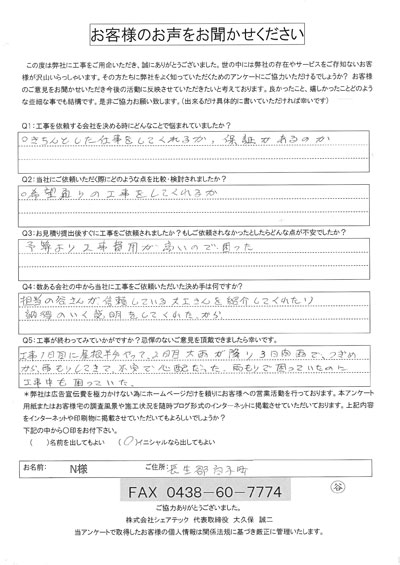 お客様のお声をお聞かせください
この度は弊社に工事をご用命いただき、誠にありがとうございました。世の中には弊社の存在やサービスをご存知ないお客様
が沢山いらっしゃいます。その方たちに弊社をよく知っていただくためのアンケートにご協力いただけるでしょうか？ お客様
のご意見をお聞かせいただき今後の活動に反映させていただきたいと考えております。良かったこと、嬉しかったことどのよう
な些細な事でも結構です。是非ご協力お願い致します。（出来るだけ具体的に書いていただければ幸いです）
Q1：工事を依頼する会社を決める時にどんなことで悩まれていましたか？
○きちんとした仕事をしてくれるか、保証があるのか
Q2：当社にご依頼いただく際にどのような点を比較・検討されましたか？
○希望通りの工事をしてくれるか
Q3：お見積り提出後すぐに工事をご依頼されましたか？もしご依頼されなかったとしたらどんな点が不安でしたか？
予算より工事費用が高いので困った
Q4：数ある会社の中から当社に工事をご依頼いただいた決め手は何ですか？
担当の谷さんが信頼している大工さんを紹介してくれたり
納得のいく説明をしてくれたから
Q5：工事が終わってみていかがですか？忌憚のないご意見を頂戴できましたら幸いです。
工事1日目に屋根半分やって、2日目大雨が降り3日間雨で、つぎめ
から雨もりしてきて、不安で心配だった。雨もりで困っていたのに
工事中も困っていた。
＊弊社は広告宣伝費を極力かけない為にホームページだけを頼りにお客様への営業活動を行っております。本アンケート
用紙またはお客様宅の調査風景や施工状況を随時ブログ形式のインターネットに掲載させていただいております。上記内容
をインターネットや印刷物に掲載させていただいてもよろしいでしょうか？
下記の中から〇印をお付下さい。
（ ）名前を出してもよい （○）イニシャルなら出してもよい
お名前： N様 ご住所： 長生郡白子町
FAX 0438－60－7774
谷
ご協力ありがとうございました。
株式会社シェアテック 代表取締役 大久保 誠二
当アンケートで取得したお客様の個人情報は関係法規に基づき厳正に管理いたします。